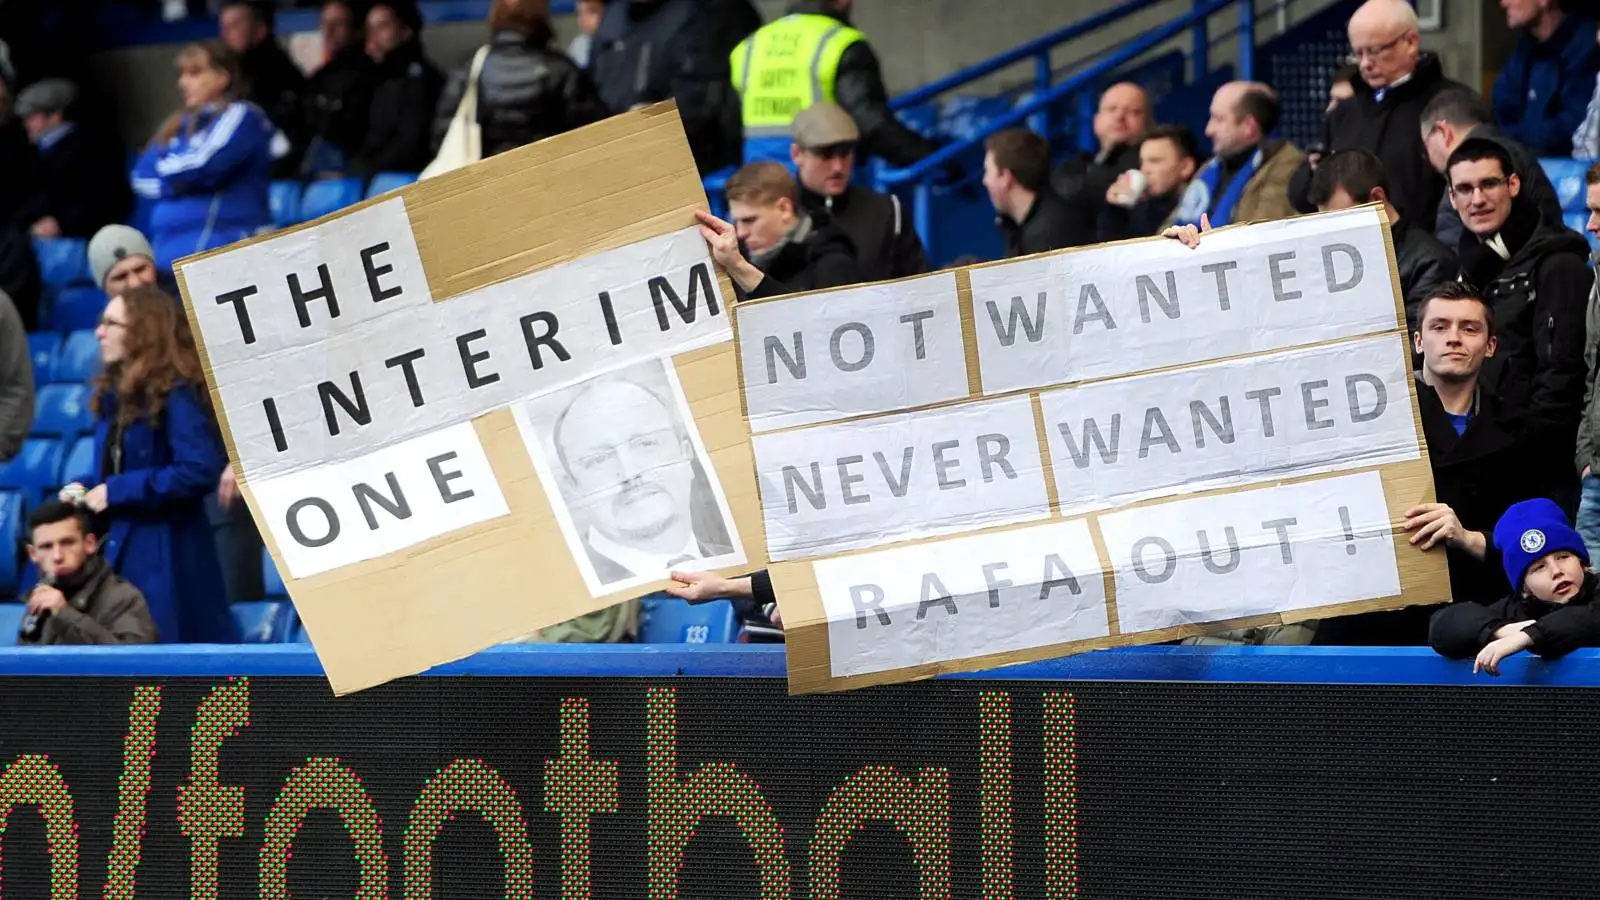 SAFETY
STEWARD
THE
INTERIM
ONE
NOT WANTED
NEVER WANTED
RAFA OUT!
133
/football